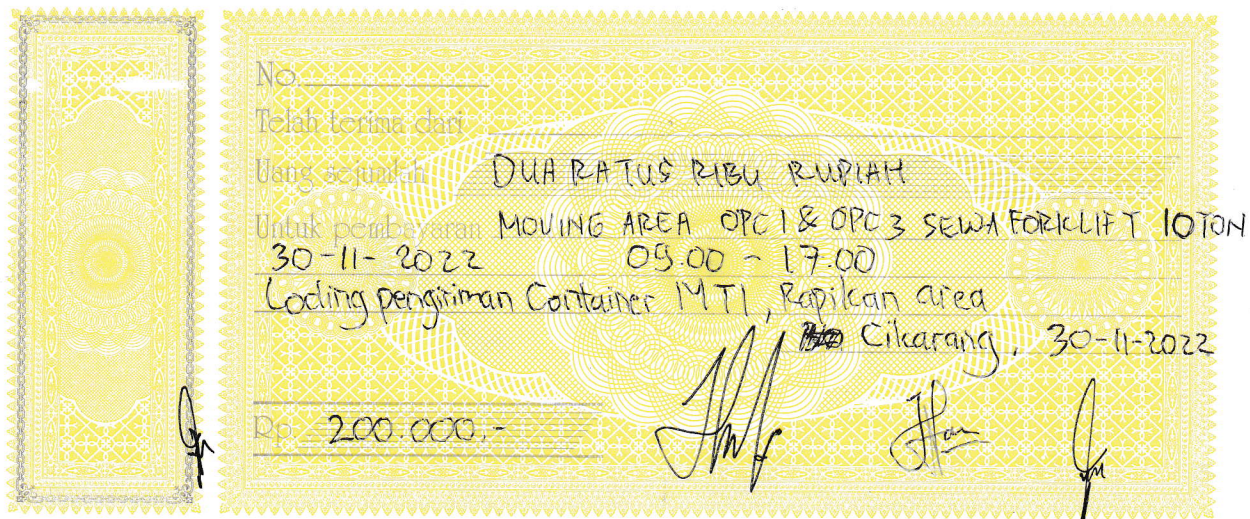 No.
Telah terima dari
Uang sejumlah DUA RATUS RIBU RUPIAH
Untuk pembayaran MOVING AREA OPC 1 & OPC 3 SEWA FORKLIFT 10 TON
30-11-2022 09.00 - 17.00
Loding pengiriman Container MTI, Rapikan area
Cikarang, 30-11-2022
Rp. 200.000,-